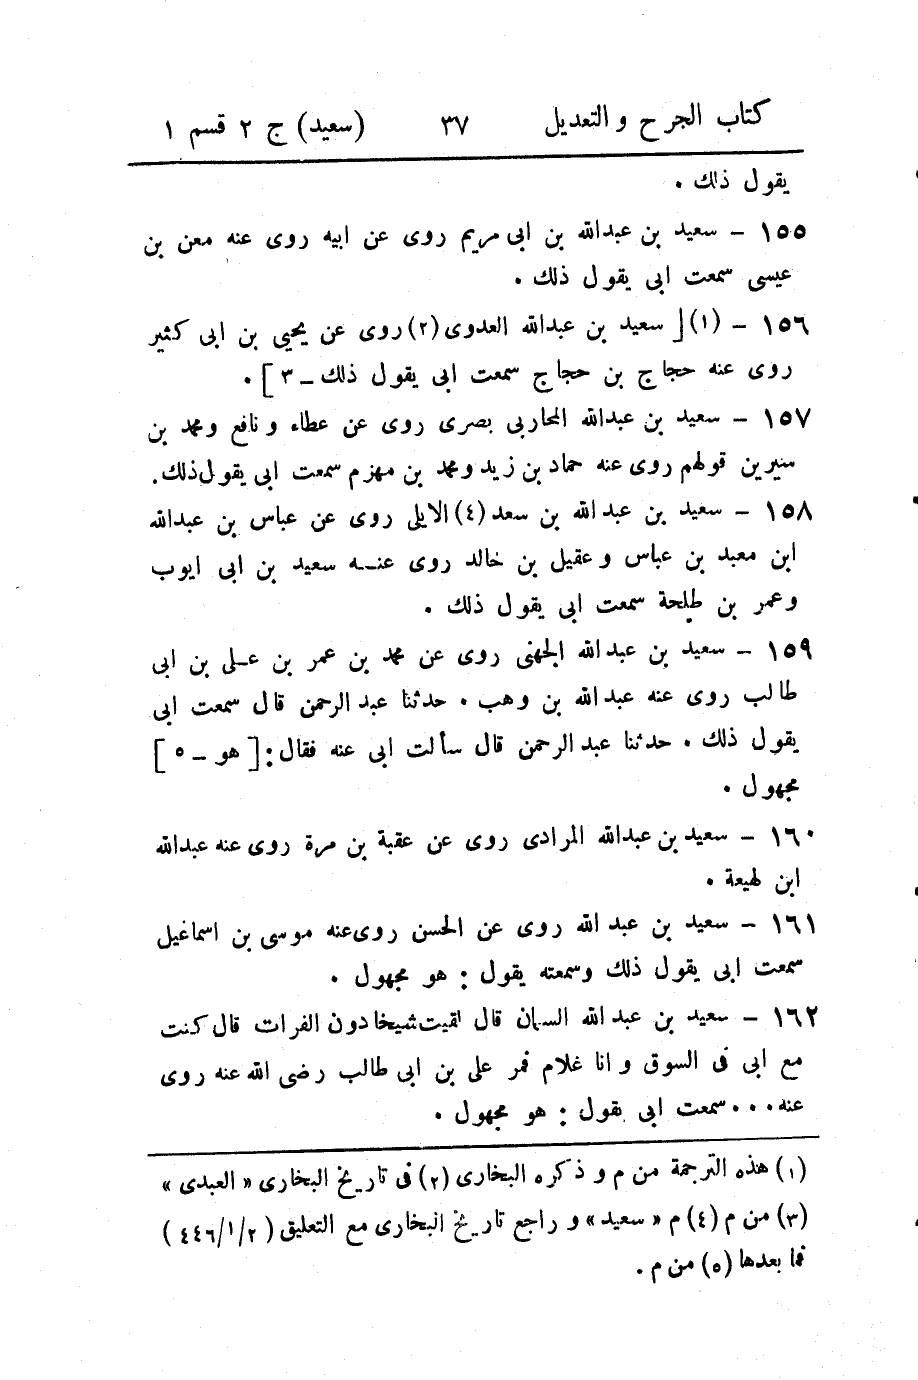 كتاب الجرح والتعديل ٣٧ (سعيد) ج ٢ قسم ١
يقول ذلك .
١٥٥ – سعيد بن عبدالله بن ابى مريم روى عن ابيه روى عنه معن بن
عيسى سمعت ابى يقول ذلك .
١٥٦ – (١) [ سعيد بن عبدالله العدوى (٢) روى عن يحيى بن ابى كثير
روى عنه حجاج بن حجاج سمعت ابى يقول ذلك – ٣ ] .
١٥٧ – سعيد بن عبدالله المحاربى بصرى روى عن عطاء ونافع ومحمد بن
سيرين قولهم روى عنه حماد بن زيد ومحمد بن مهزم سمعت ابى يقول ذلك .
١٥٨ – سعيد بن عبد الله بن سعد (٤) الايلى روى عن عباس بن عبدالله
ابن معبد بن عباس وعقيل بن خالد روى عنه سعيد بن ابى ايوب
وعمر بن طلحة سمعت ابى يقول ذلك .
١٥٩ – سعيد بن عبدالله الجهنى روى عن محمد بن عمر بن على بن ابى
طالب روى عنه عبدالله بن وهب . حدثنا عبد الرحمن قال سمعت ابى
يقول ذلك . حدثنا عبد الرحمن قال سألت ابى عنه فقال : [ هو – ٥ ]
مجهول .
١٦٠ – سعيد بن عبدالله المرادى روى عن عقبة بن مرة روى عنه عبدالله
ابن لهيعة .
١٦١ – سعيد بن عبد الله روى عن الحسن روى عنه موسى بن اسماعيل
سمعت ابى يقول ذلك وسمعته يقول : هو مجهول .
١٦٢ – سعيد بن عبد الله السمان قال لقيت شيخا دون الفرات قال كنت
مع ابى فى السوق وانا غلام فمر على بن ابى طالب رضى الله عنه روى
عنه . . . سمعت ابى يقول : هو مجهول .
(١) هذه الترجمة من م وذكره البخارى (٢) فى تاريخ البخارى « العبدى »
(٣) من م (٤) م « سعيد » وراجع تاريخ البخارى مع التعليق ( ٢/١/٤٤٦ )
فما بعدها (٥) من م .